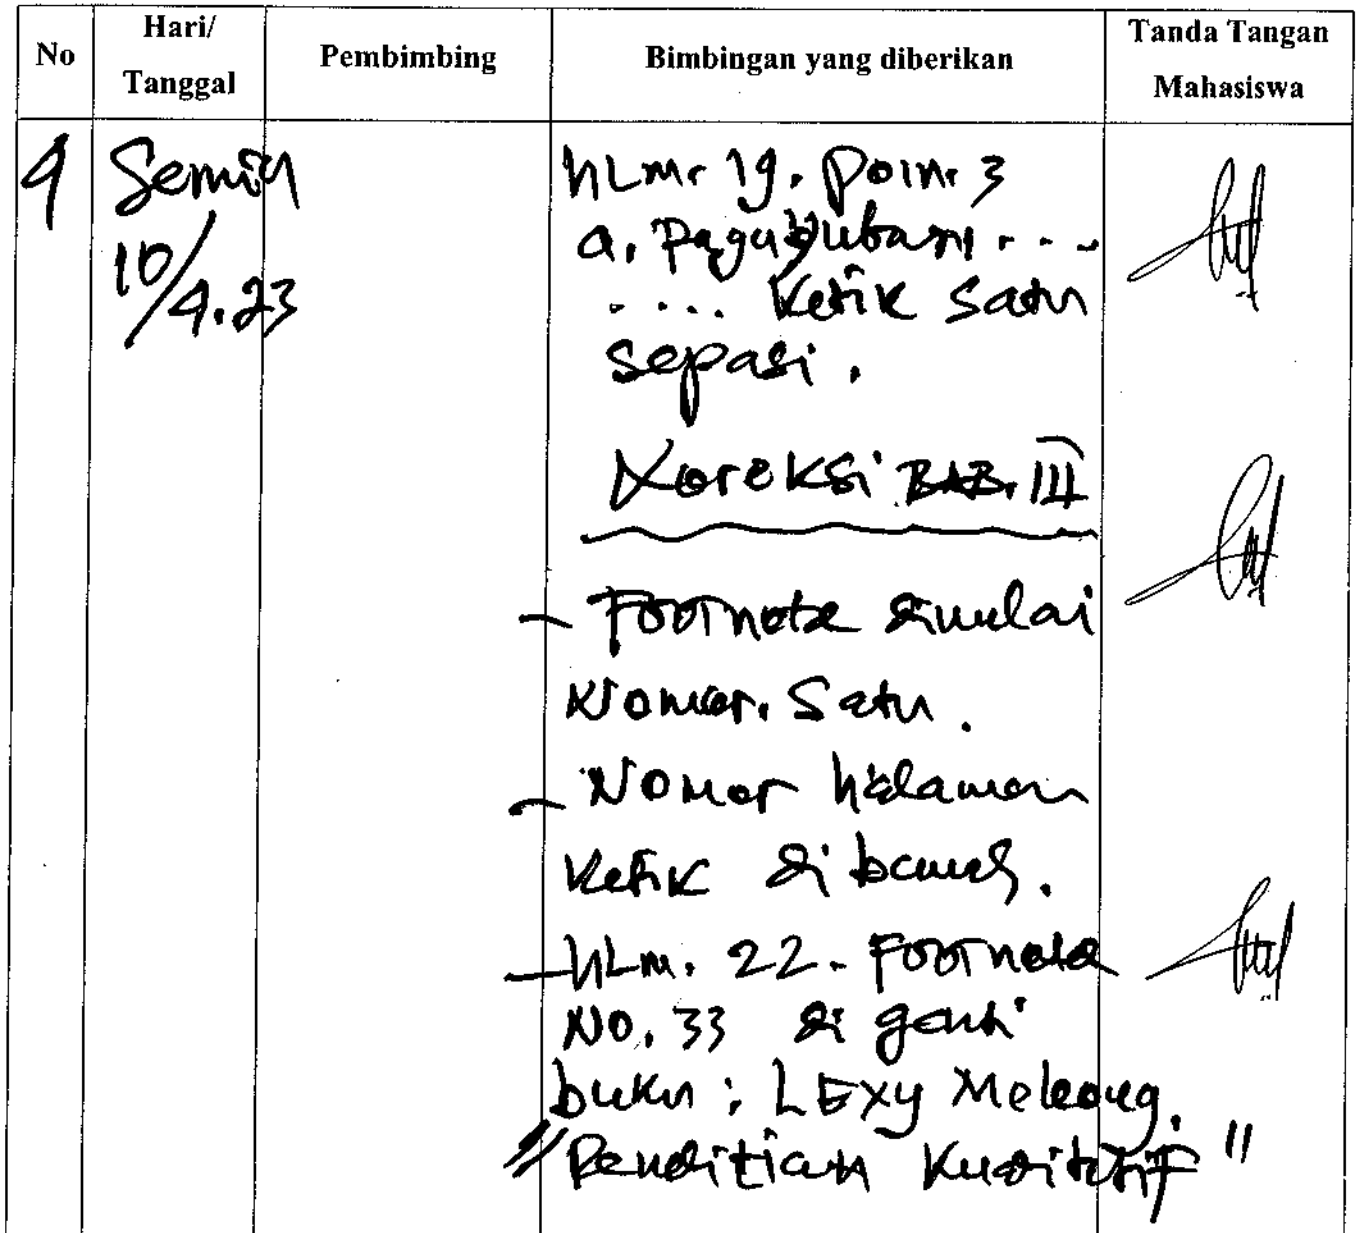 No
Hari/
Tanggal
Pembimbing
Bimbingan yang diberikan
Tanda Tangan
Mahasiswa
9
Senin
10/4.23
HLm. 19. Poin. 3
a. ....
.... Ketik Satu
Sepasi.
Koreksi BAB. III
- Footnote dimulai
Nomor. Satu.
- Nomor halaman
Ketik di bawah.
- HLm. 22. Footnote
No. 33 di ganti
buku : LExy Meleong.
"Penelitian Kualitatif"